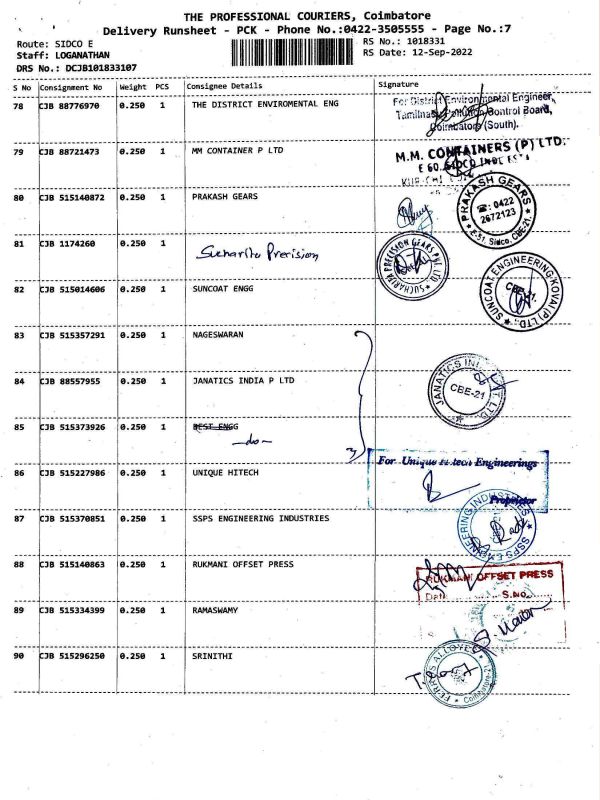 THE PROFESSIONAL COURIERS, Coimbatore
Delivery Runsheet - PCK - Phone No.:0422-3505555 - Page No.:7
Route: SIDCO E
RS No.: 1018331
Staff: LOGANATHAN
RS Date: 12-Sep-2022
DRS No.: DCJB101833107
S No Consignment No Weight PCS Consignee Details Signature
78 CJB 88776970 0.250 1 THE DISTRICT ENVIROMENTAL ENG
For District Environmental Engineer,
Tamilnadu Pollution Control Board,
Coimbatore (South).
79 CJB 88721473 0.250 1 MM CONTAINER P LTD
M.M. CONTAINERS (P) LTD.
E 60, SIDCO INDL EST
80 CJB 515140872 0.250 1 PRAKASH GEARS
PRAKASH GEARS
☎: 0422
2672123
E-51, Sidco, CBE-21.
81 CJB 1174260 0.250 1 Sucharita Precision
SUCHARITA PRECISION GEARS PVT. LTD.
82 CJB 515014606 0.250 1 SUNCOAT ENGG
SUNCOAT ENGINEERING KOVAI (P) LTD.
CBE-21.
83 CJB 515357291 0.250 1 NAGESWARAN
84 CJB 88557955 0.250 1 JANATICS INDIA P LTD
JANATICS INDIA PVT. LTD.
CBE-21
85 CJB 515373926 0.250 1 BEST ENGG
-do-
86 CJB 515227986 0.250 1 UNIQUE HITECH
For Unique Hitech Engineerings
Proprietor
87 CJB 515370851 0.250 1 SSPS ENGINEERING INDUSTRIES
SSPS ENGINEERING INDUSTRIES
88 CJB 515140863 0.250 1 RUKMANI OFFSET PRESS
RUKMANI OFFSET PRESS
Date S.No.
89 CJB 515334399 0.250 1 RAMASWAMY
90 CJB 515296250 0.250 1 SRINITHI
FERROS ALLOYES
Coimbatore-21